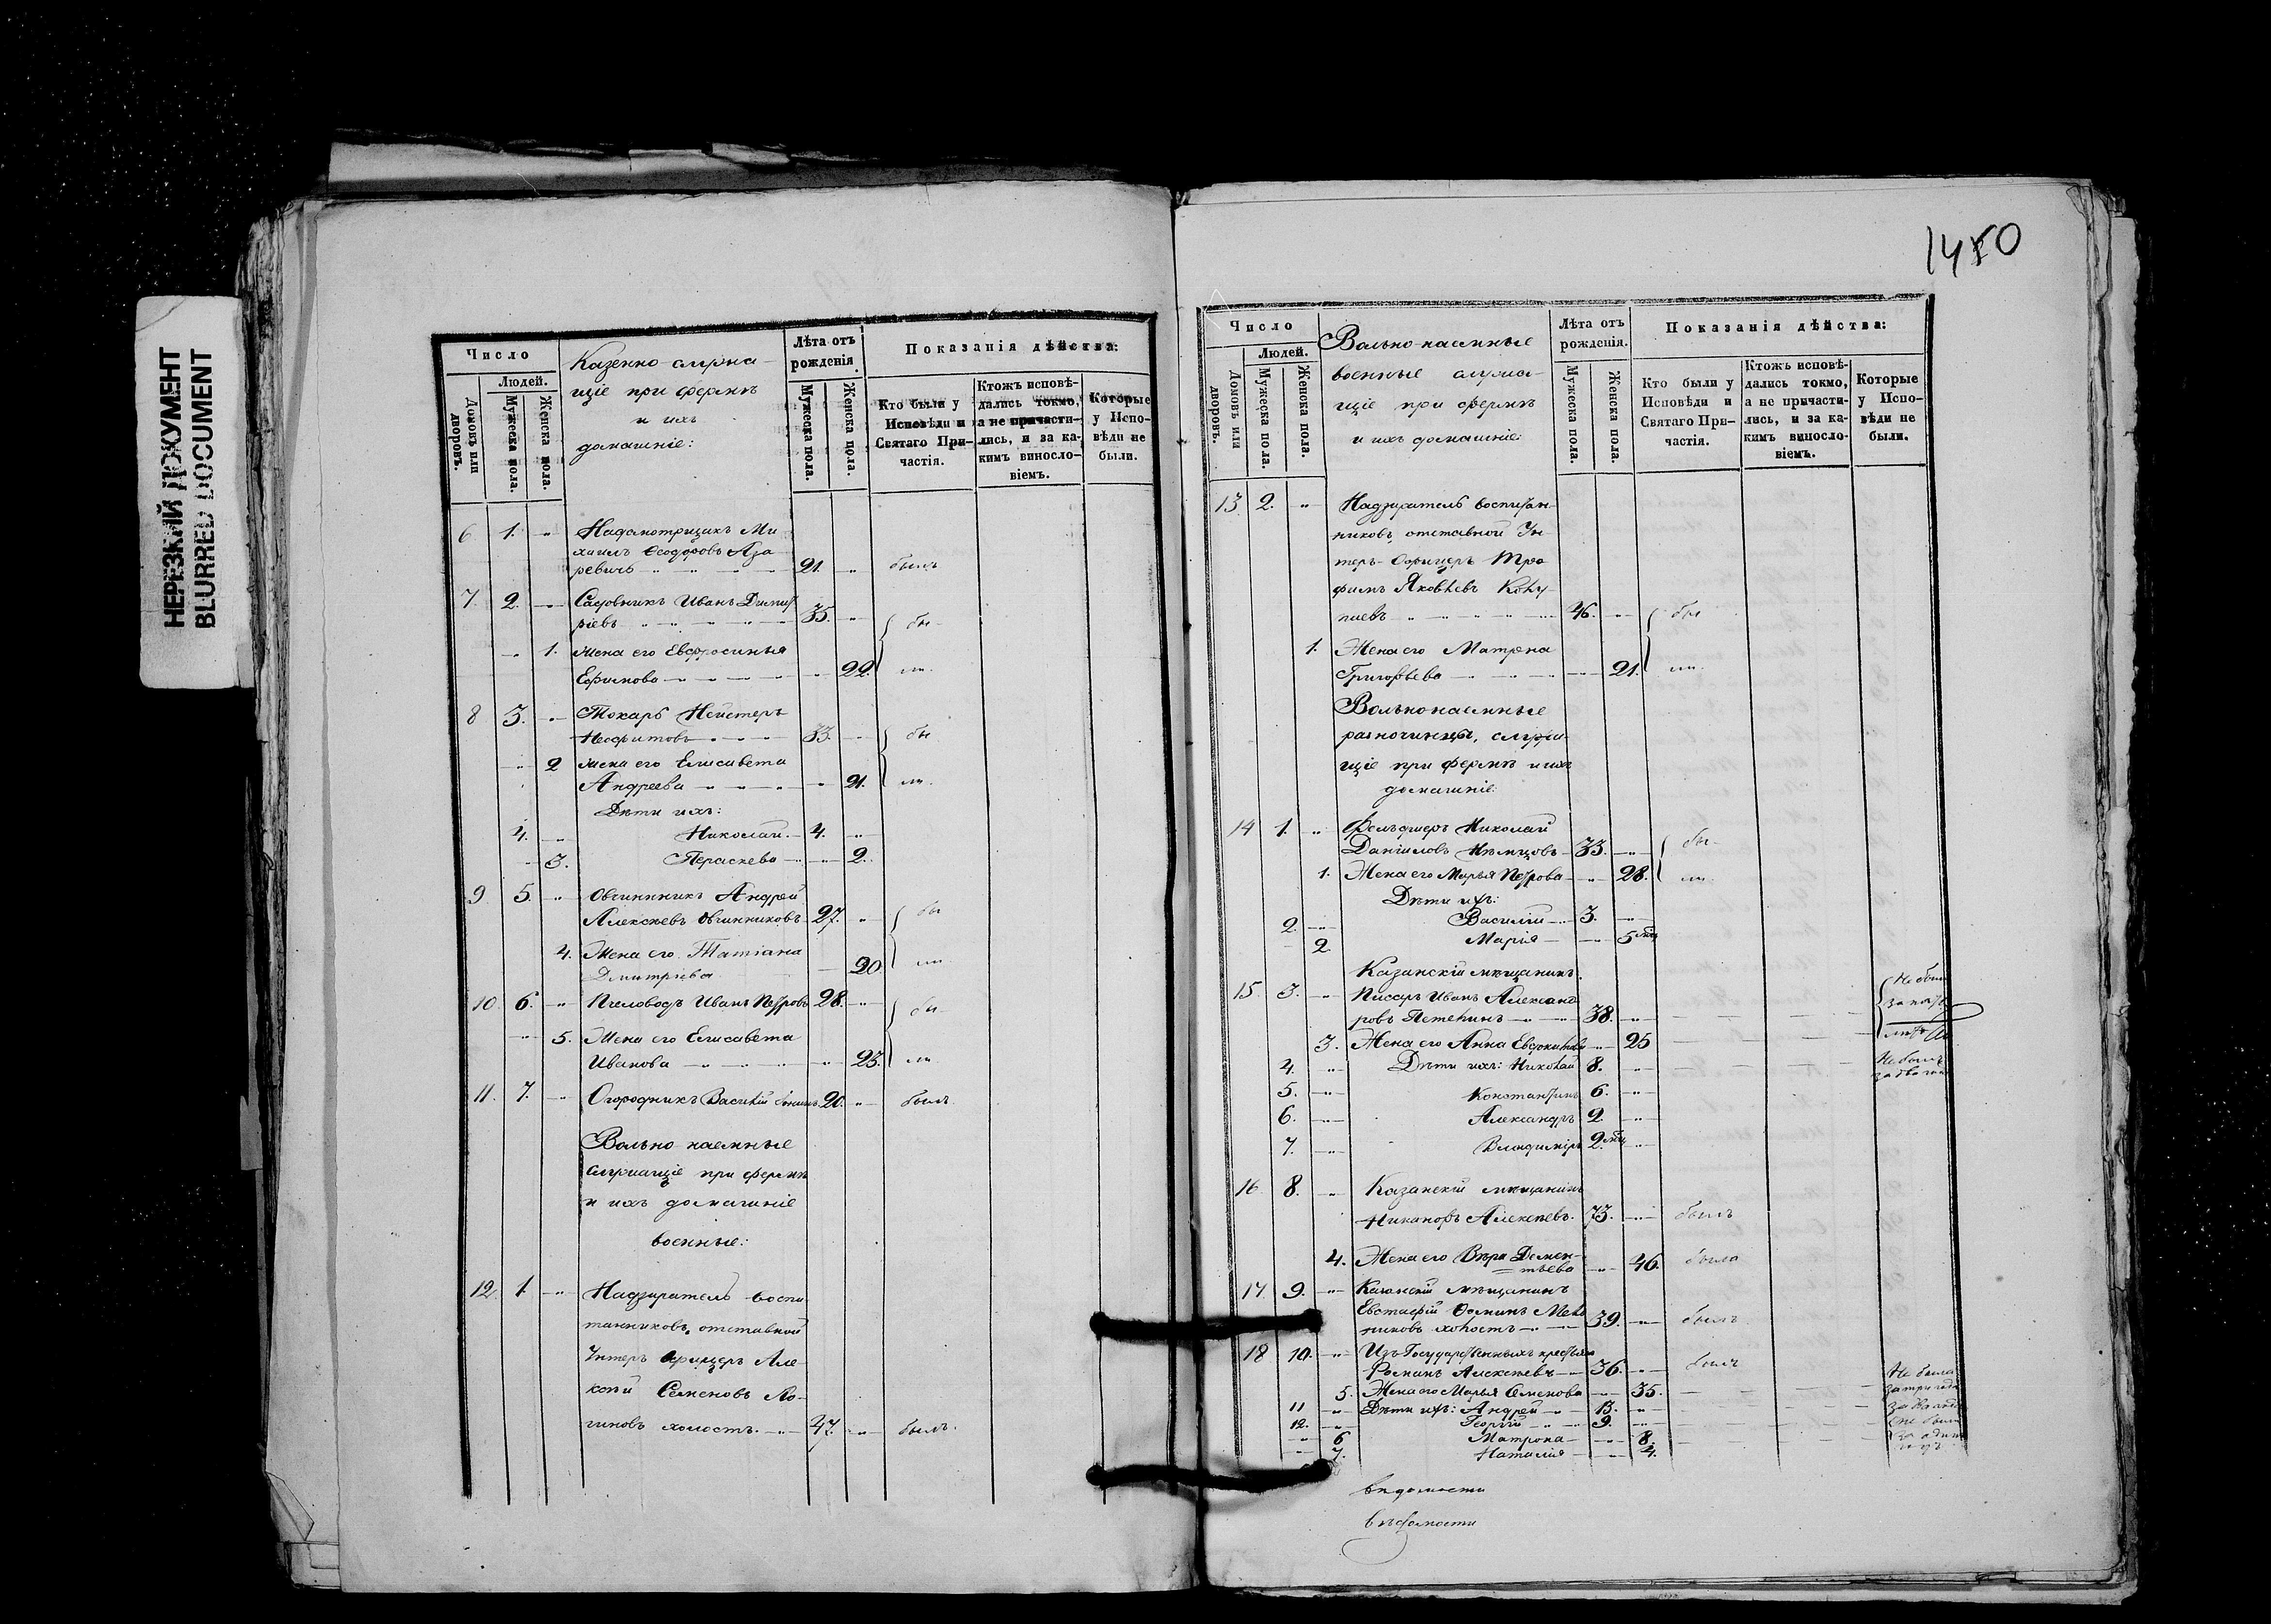 НЕРЕЗКИЙ ДОКУМЕНТ
BLURRED DOCUMENT
Число
Людей.
Домовъ или дворовъ.
Мужеска пола.
Женска пола.
Казенно-служа-
щіе при фермѣ
и ихъ
домашніе:
Лѣта отъ рожденія.
Мужеска пола.
Женска пола.
Показанія дѣйства:
Кто были у Исповѣди и Святаго При-частія.
Ктожъ исповѣ-дались токмо, а не причасти-лись, и за ка-кимъ виносло-віемъ.
Которые у Испо-вѣди не были.
6 1. " Надсмотрщикъ Ми-
хаилъ Ѳеодоровъ Аза-
ревичъ 21. " былъ
7. 2. " Садовникъ Иванъ Димит
ріевъ 35. " бы-
" 1. Жена его Евфросинья
Ефимова " 22. ли.
8 3. " Токарь Нестеръ
Неофитовъ 33. " бы
" 2 Жена его Елисавета
Андреева " 21. ли.
Дѣти ихъ:
4. " Николай 4. "
" 3. Параскева " 2.
9 5. " Овчинникъ Андрей
Алексѣевъ Овчинниковъ 27. " бы
4. Жена его Татіана
Дмитріева 20. ли
10. 6. " Пчеловодъ Иванъ Петровъ 28. " бы-
" 5. Жена его Елисавета
Иванова " 23. ли
11. 7. " Огородникъ Василій 20. " былъ.
Вольно наемные
служащіе при фермѣ
и ихъ домашніе
военные:
12. 1. " Надзиратель воспи-
танниковъ, отставной
Унтеръ офицеръ Але-
ксѣй Семеновъ Ло-
гиновъ холостъ. 47. " былъ.
1450
Число
Людей.
Домовъ или дворовъ.
Мужеска пола.
Женска пола.
Вольно-наемные
военные служа-
щіе при фермѣ
и ихъ домашніе:
Лѣта отъ рожденія.
Мужеска пола.
Женска пола.
Показанія дѣйства:
Кто были у Исповѣди и Святаго При-частія.
Ктожъ исповѣ-дались токмо, а не причасти-лись, и за ка-кимъ виносло-віемъ.
Которые у Испо-вѣди не были.
13. 2. " Надзиратель воспитан-
никовъ, отставной Ун-
теръ-Офицеръ Тро-
фимъ Яковлевъ
46. " бы
1. Жена его Матрона
Григорьева " 21. ли.
Вольнонаемные
разночинцы, служа-
щіе при фермѣ и ихъ
домашніе:
14 1. " Фельдшеръ Николай
Даніиловъ Нѣмцовъ 33. " бы-
1. Жена его Марья Петрова " 28. ли.
Дѣти ихъ:
2. " Василій 3. "
2 Марія " 5 мѣц
Казанскій мѣщанинъ.
15. 3. " Писарь Иванъ Александ
ровъ 38. " Не были
3. Жена его Анна " 25
4. " Дѣти ихъ: Николай 8. " Не былъ
5. " Константинъ 6. "
6. " Александръ 2. "
7. " Владиміръ 2. мѣц "
16. 8. " Казанскій мѣщанинъ
Никаноръ Алексѣевъ. 73. " былъ
4. Жена его Вѣра Демен-
тьева " 46. была
17. 9. " Казанскій мѣщанинъ
Евстафій Ѳоминъ
никовъ холостъ 39. " былъ
18 10. " Изъ Государственныхъ крестьянъ
Романъ Алексѣевъ 36. " былъ
5. Жена его Марья Семенова " 35. Не была
за три года
11 " Дѣти ихъ: Андрей 13. "
12. " Георгій 9. " не были
" 6 Матрона " 8.
" 7. Наталія " 4.
вѣдомости
вѣдомости